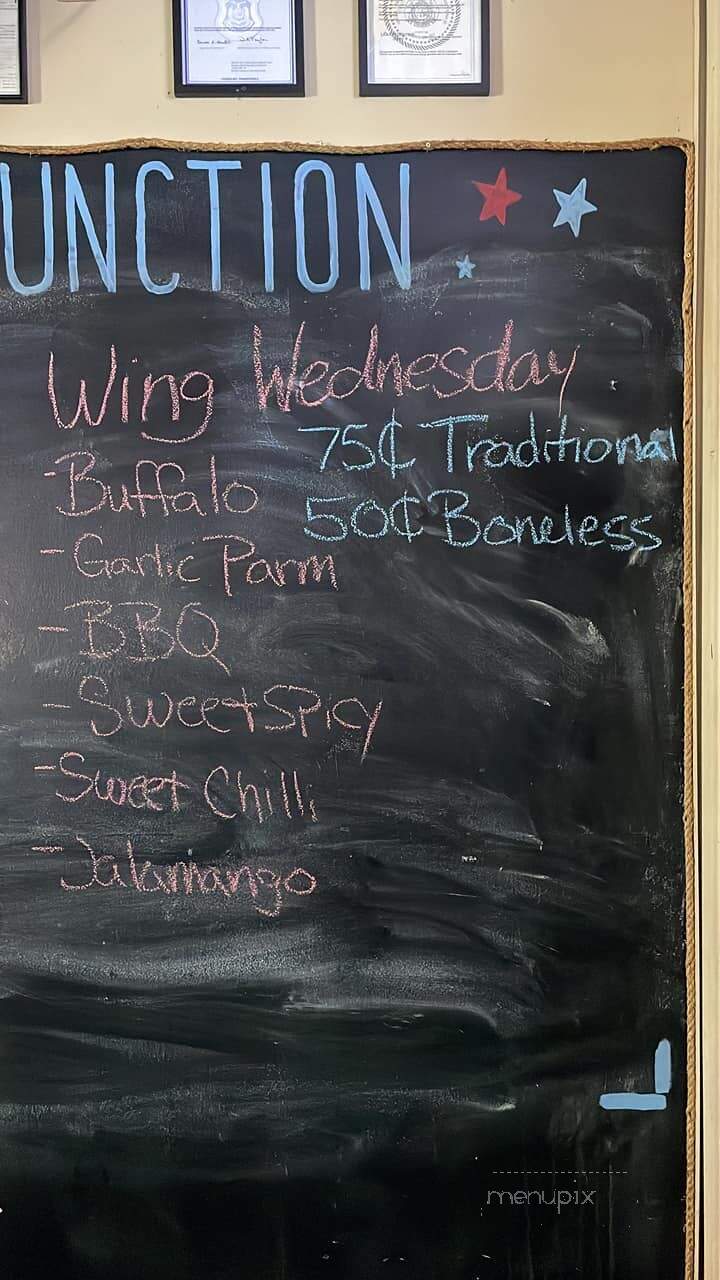 UNCTION
Wing Wednesday
75¢ Traditional
-Buffalo
50¢ Boneless
-Garlic Parm
-BBQ
-Sweet Spicy
-Sweet Chilli
-Jalamango
menupix